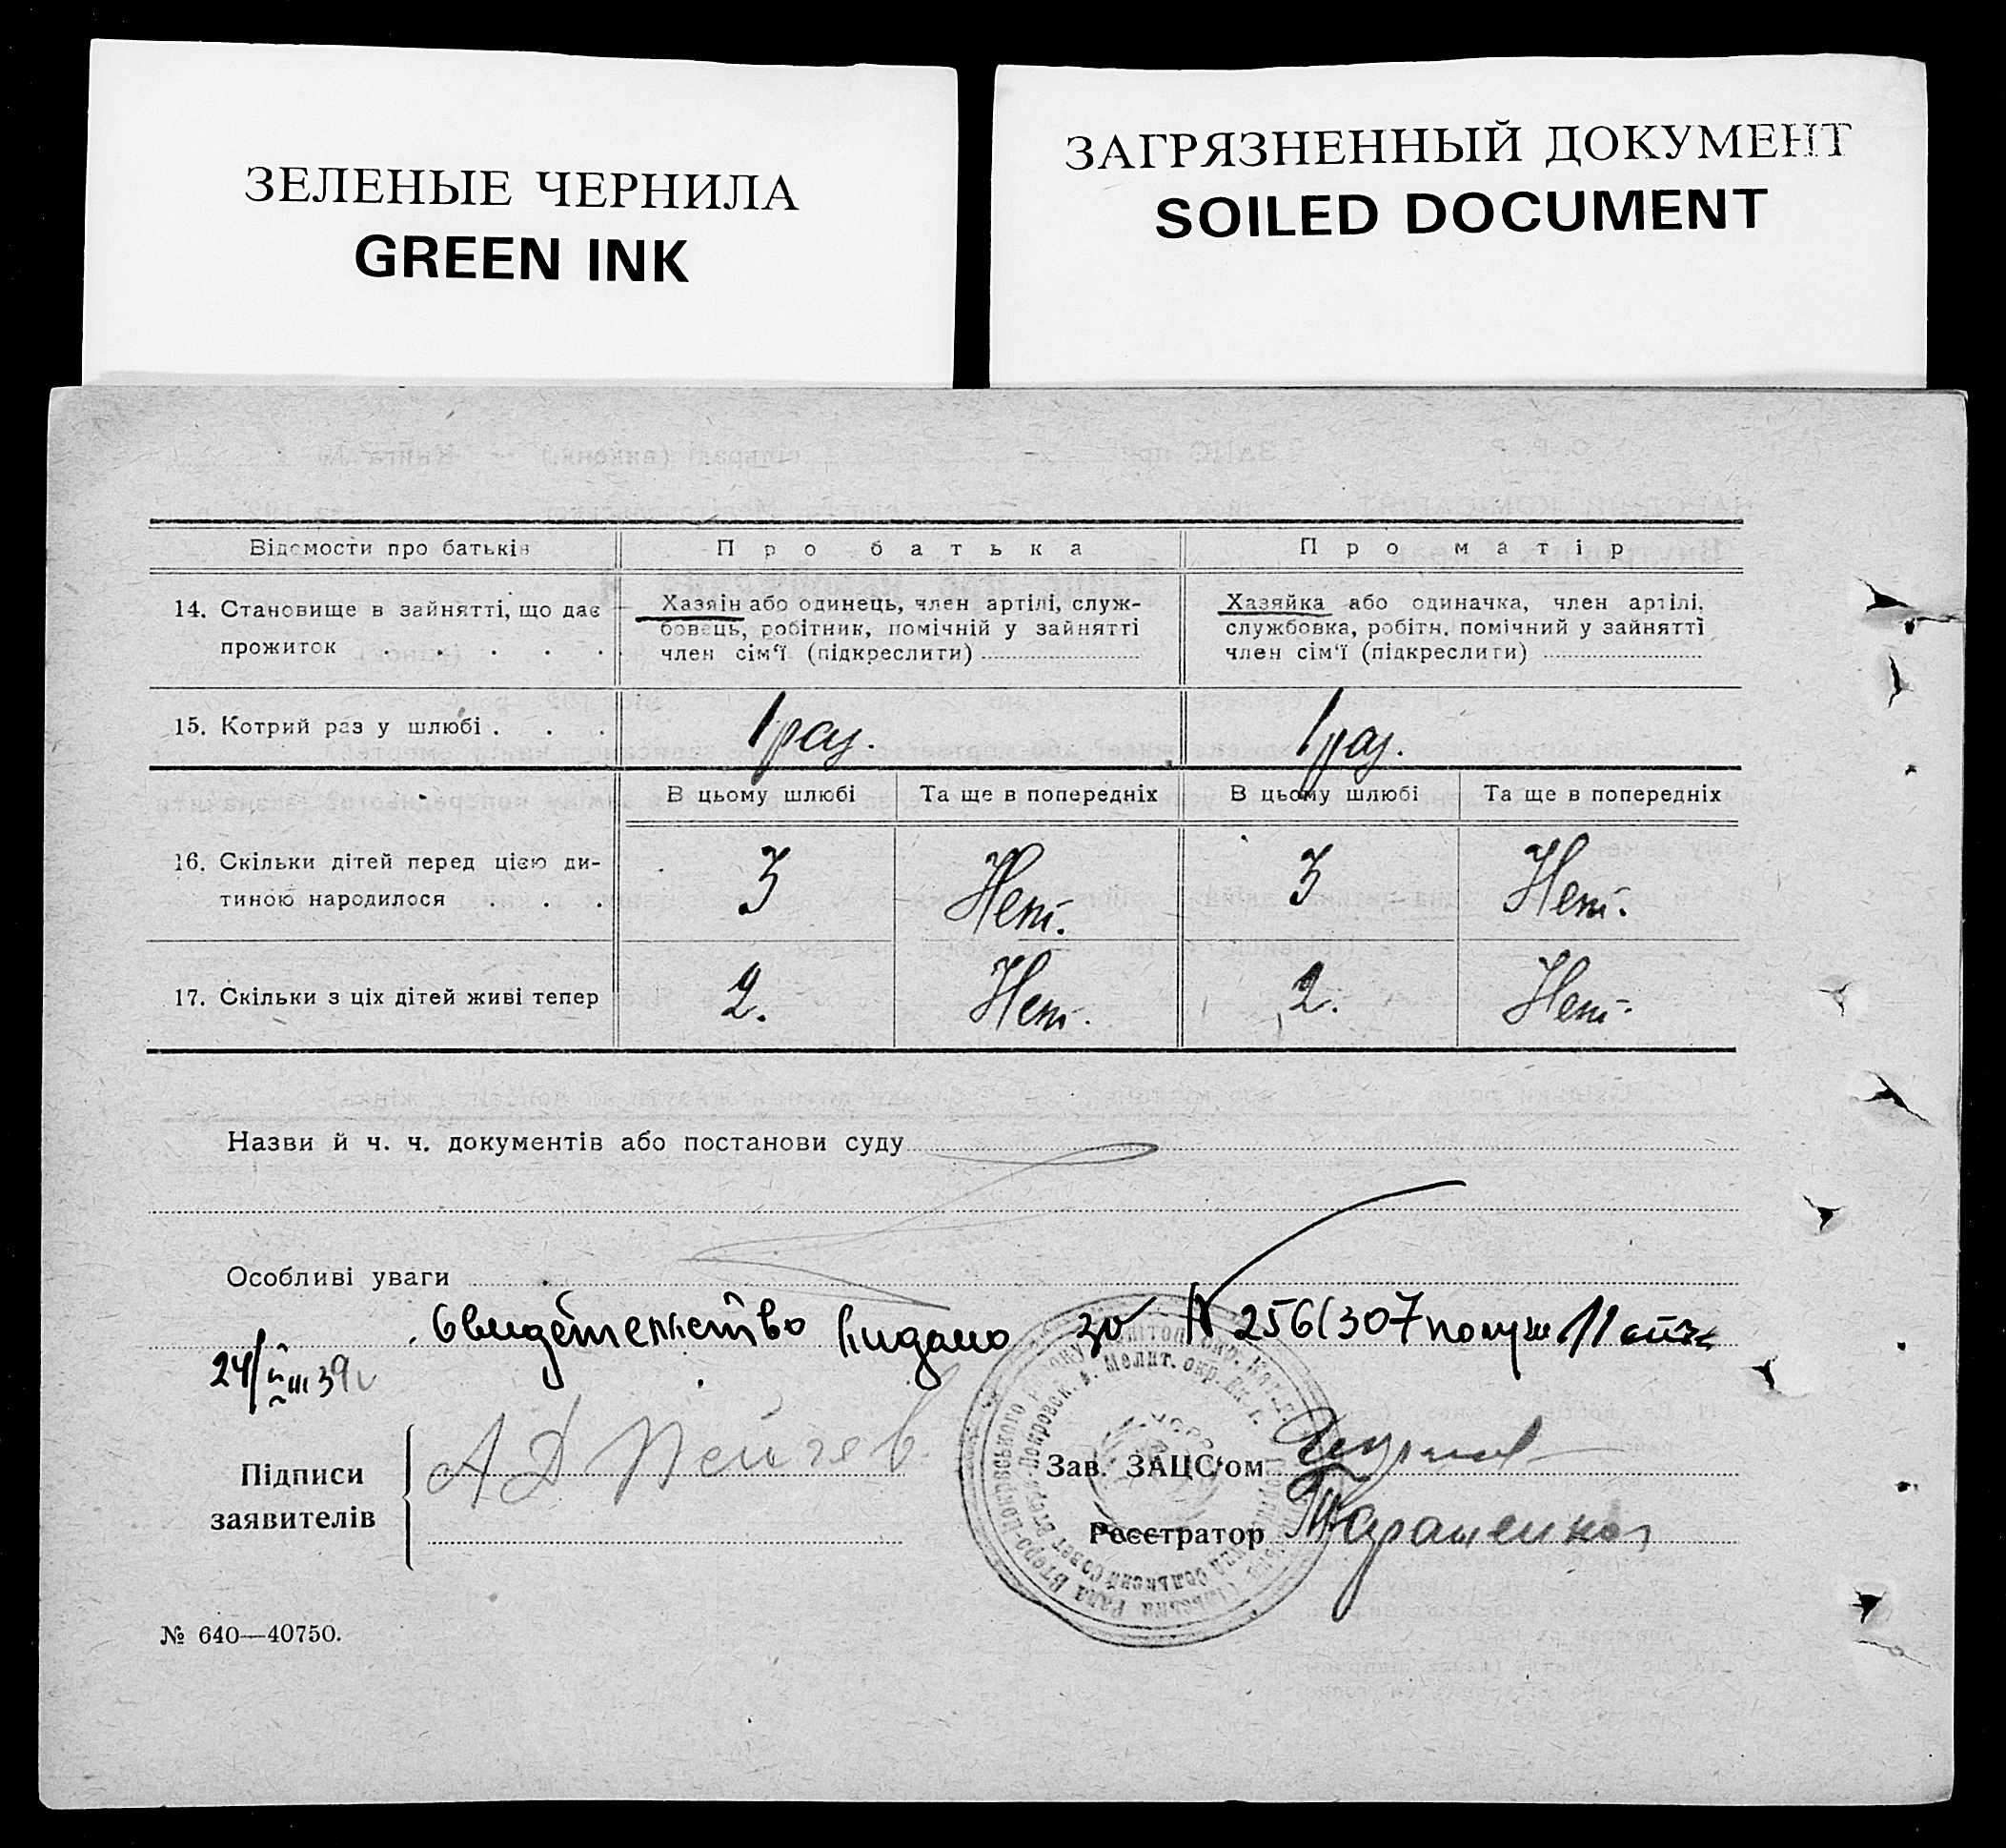 ЗЕЛЕНЫЕ ЧЕРНИЛА
GREEN INK
ЗАГРЯЗНЕННЫЙ ДОКУМЕНТ
SOILED DOCUMENT
Відомости про батьків
Про батька
Про матір
14. Становище в зайнятті, що дає
прожиток . . . . .
Хазяін або одинець, член артілі, служ-
бовець, робітник, помічній у зайнятті
член сім‘ї (підкреслити)
Хазяйка або одиначка, член артілі,
службовка, робітн. помічний у зайнятті
член сім‘ї (підкреслити)
15. Котрий раз у шлюбі . . .
1 раз.
1 раз.
В цьому шлюбі
Та ще в попередніх
В цьому шлюбі
Та ще в попередніх
16. Скільки дітей перед цією ди-
тиною народилося . . .
3
Нет.
3
Нет.
17. Скільки з ціх дітей живі тепер
2.
Нет.
2.
Нет.
Назви й ч. ч. документів або постанови суду
Особливі уваги
Свидетельство видано за № 256130
Підписи
заявителів
А Д Пейчев
Зав. ЗАЦС‘ом
Реєстратор
№ 640—40750.